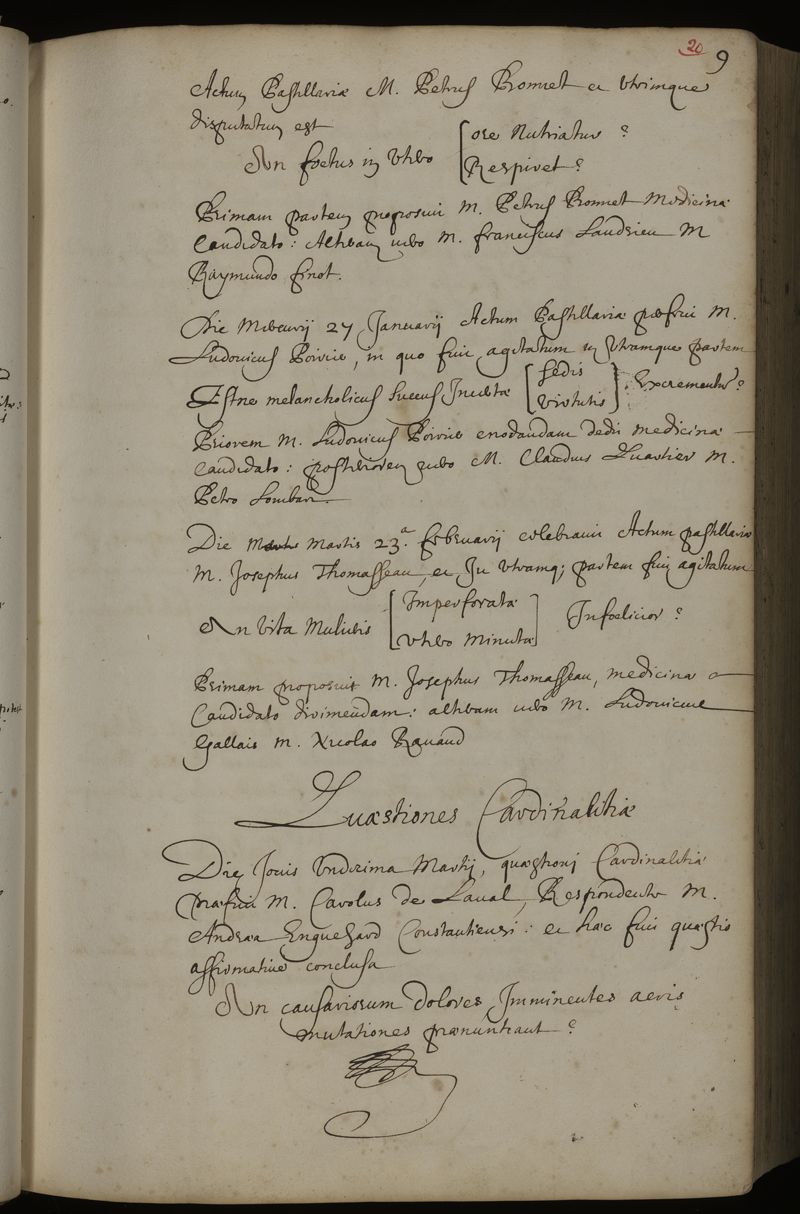 20
9
Actum Pastillariæ M. Petrus Bonnet et utrimque
disputatum est
An fœtus in utero [ ore Nutriatur ?
Respiret ?
Primam partem proposuit M. Petrus Bonnet Medicinæ
Candidato : Alteram vero M. franciscus Landrieu M
Raymundo finot.
Die Mercurij 27 Januarij Actum Pastillariæ præfuit M.
Ludovicus Poirier, in quo fuit agitatum in Utramque partem
Estne melancholicus succus Incertæ [ sedis ] Excrementum ?
virtutis
Priorem M. Ludovicus Poirier enodandam dedit medicinæ
Candidato : posteriorem vero M. Claudius Quartier M.
Petro Lombart
Die Martis 23.a februarij celebravit Actum pastillariæ
M. Josephus Thomasseau, et In utramq; partem fuit agitatum
An Vita Mulieris [ Imperforatæ ] Infœlicior ?
Utero Minutæ
Primam proposuit M. Josephus Thomasseau, medicinæ
Candidato dirimendam : alteram vero M. Ludovicus
Gallais M. Nicolao Ravaud
Quæstiones Cardinalitiæ
Die Jovis Undecima Martij, quæstioni Cardinalitiæ
præfuit M. Carolus de Laval, Respondente M.
Andrea Enguehard Constantiensi : et hæc fuit quæstio
affirmative conclusa
An causariorum dolores Imminentes aeris
mutationes prænuntiant ?